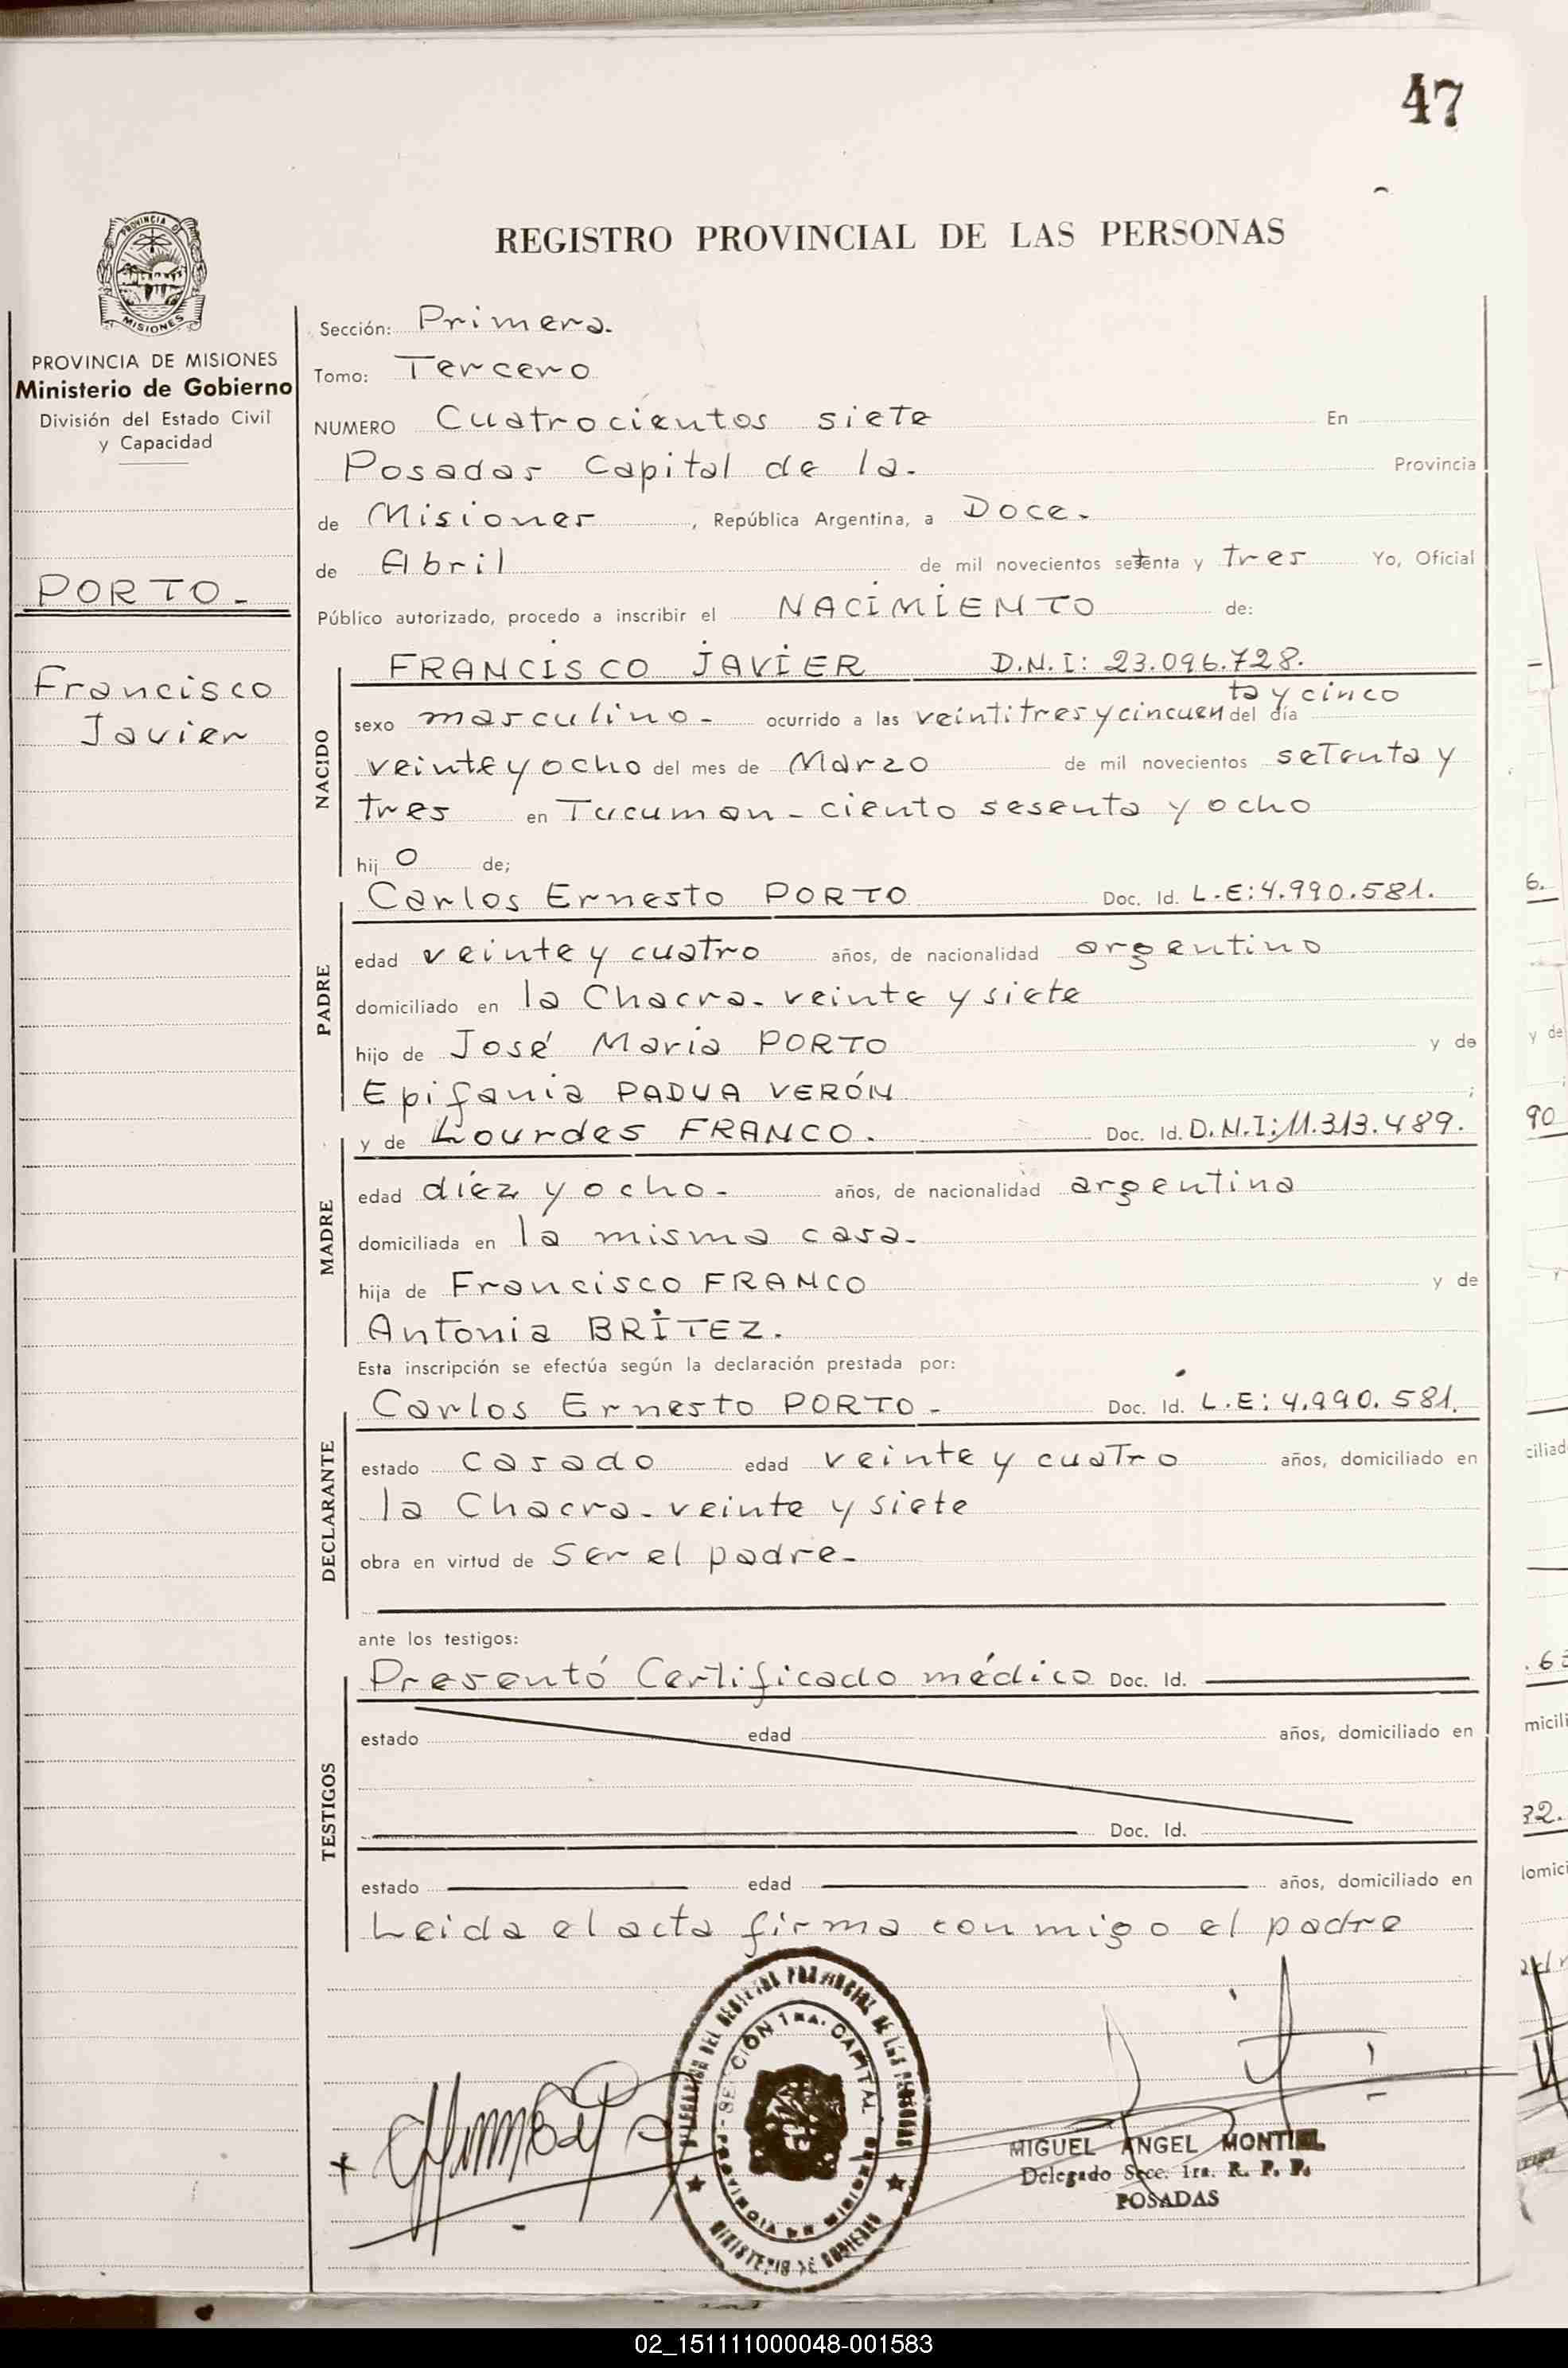 47
REGISTRO PROVINCIAL DE LAS PERSONAS
PROVINCIA DE MISIONES
PROVINCIA DE MISIONES
Ministerio de Gobierno
División del Estado Civil
y Capacidad
PORTO-
Francisco
Javier
Sección: Primera.
Tomo: Tercero
NUMERO Cuatrocientos siete En
Posadas Capital de la. Provincia
de Misiones, República Argentina, a Doce.
de Abril de mil novecientos setenta y tres Yo, Oficial
Público autorizado, procedo a inscribir el NACIMIENTO de:
NACIDO
FRANCISCO JAVIER D.N.I: 23.096.728.
ta y cinco
sexo masculino- ocurrido a las veintitres y cincuen del día
veinte y ocho del mes de Marzo de mil novecientos setenta y
tres en Tucuman - ciento sesenta y ocho
hij o de;
PADRE
Carlos Ernesto PORTO Doc. Id. L.E:4.990.581.
edad veinte y cuatro años, de nacionalidad argentino
domiciliado en la Chacra- veinte y siete
hijo de José Maria PORTO y de
Epifania PADUA VERÓN ;
MADRE
y de Lourdes FRANCO. Doc. Id. D.N.I:11.313.489.
edad diez y ocho- años, de nacionalidad argentina
domiciliada en la misma casa-
hija de Francisco FRANCO y de
Antonia BRITEZ.
Esta inscripción se efectúa según la declaración prestada por:
DECLARANTE
Carlos Ernesto PORTO- Doc. Id. L.E: 4.990.581.
estado casado edad veinte y cuatro años, domiciliado en
la Chacra- veinte y siete
obra en virtud de ser el padre-
ante los testigos:
TESTIGOS
Presentó Certificado médico Doc. Id.
estado edad años, domiciliado en
Doc. Id.
estado edad años, domiciliado en
Leida el acta firma conmigo el padre
DIRECCION DEL REGISTRO PROVINCIAL DE LAS PERSONAS
SECCIÓN 1RA. CAPITAL
PROVINCIA DE MISIONES
MINISTERIO DE GOBIERNO
MIGUEL ANGEL MONTIEL
Delegado Secc. 1ra. R. P. P.
POSADAS
6.
y de
90
ciliad
.63
micili
32.
lomici
02_151111000048-001583